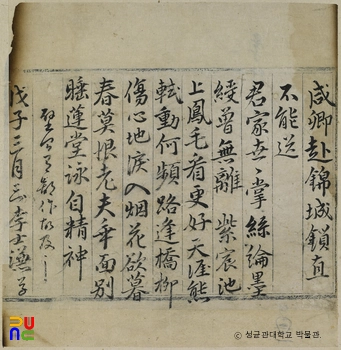 咸卿赴錦城鎖直
不能送
君家世世掌絲綸墨
綬曾無離紫宸池
上鳳毛看更好天涯熊
軾動何頻路逢橋柳
傷心地淚入烟花欲暮
春莫恨老夫乖面別
睡蓮堂詠自精神
戊子三月
© 성균관대학교 박물관.